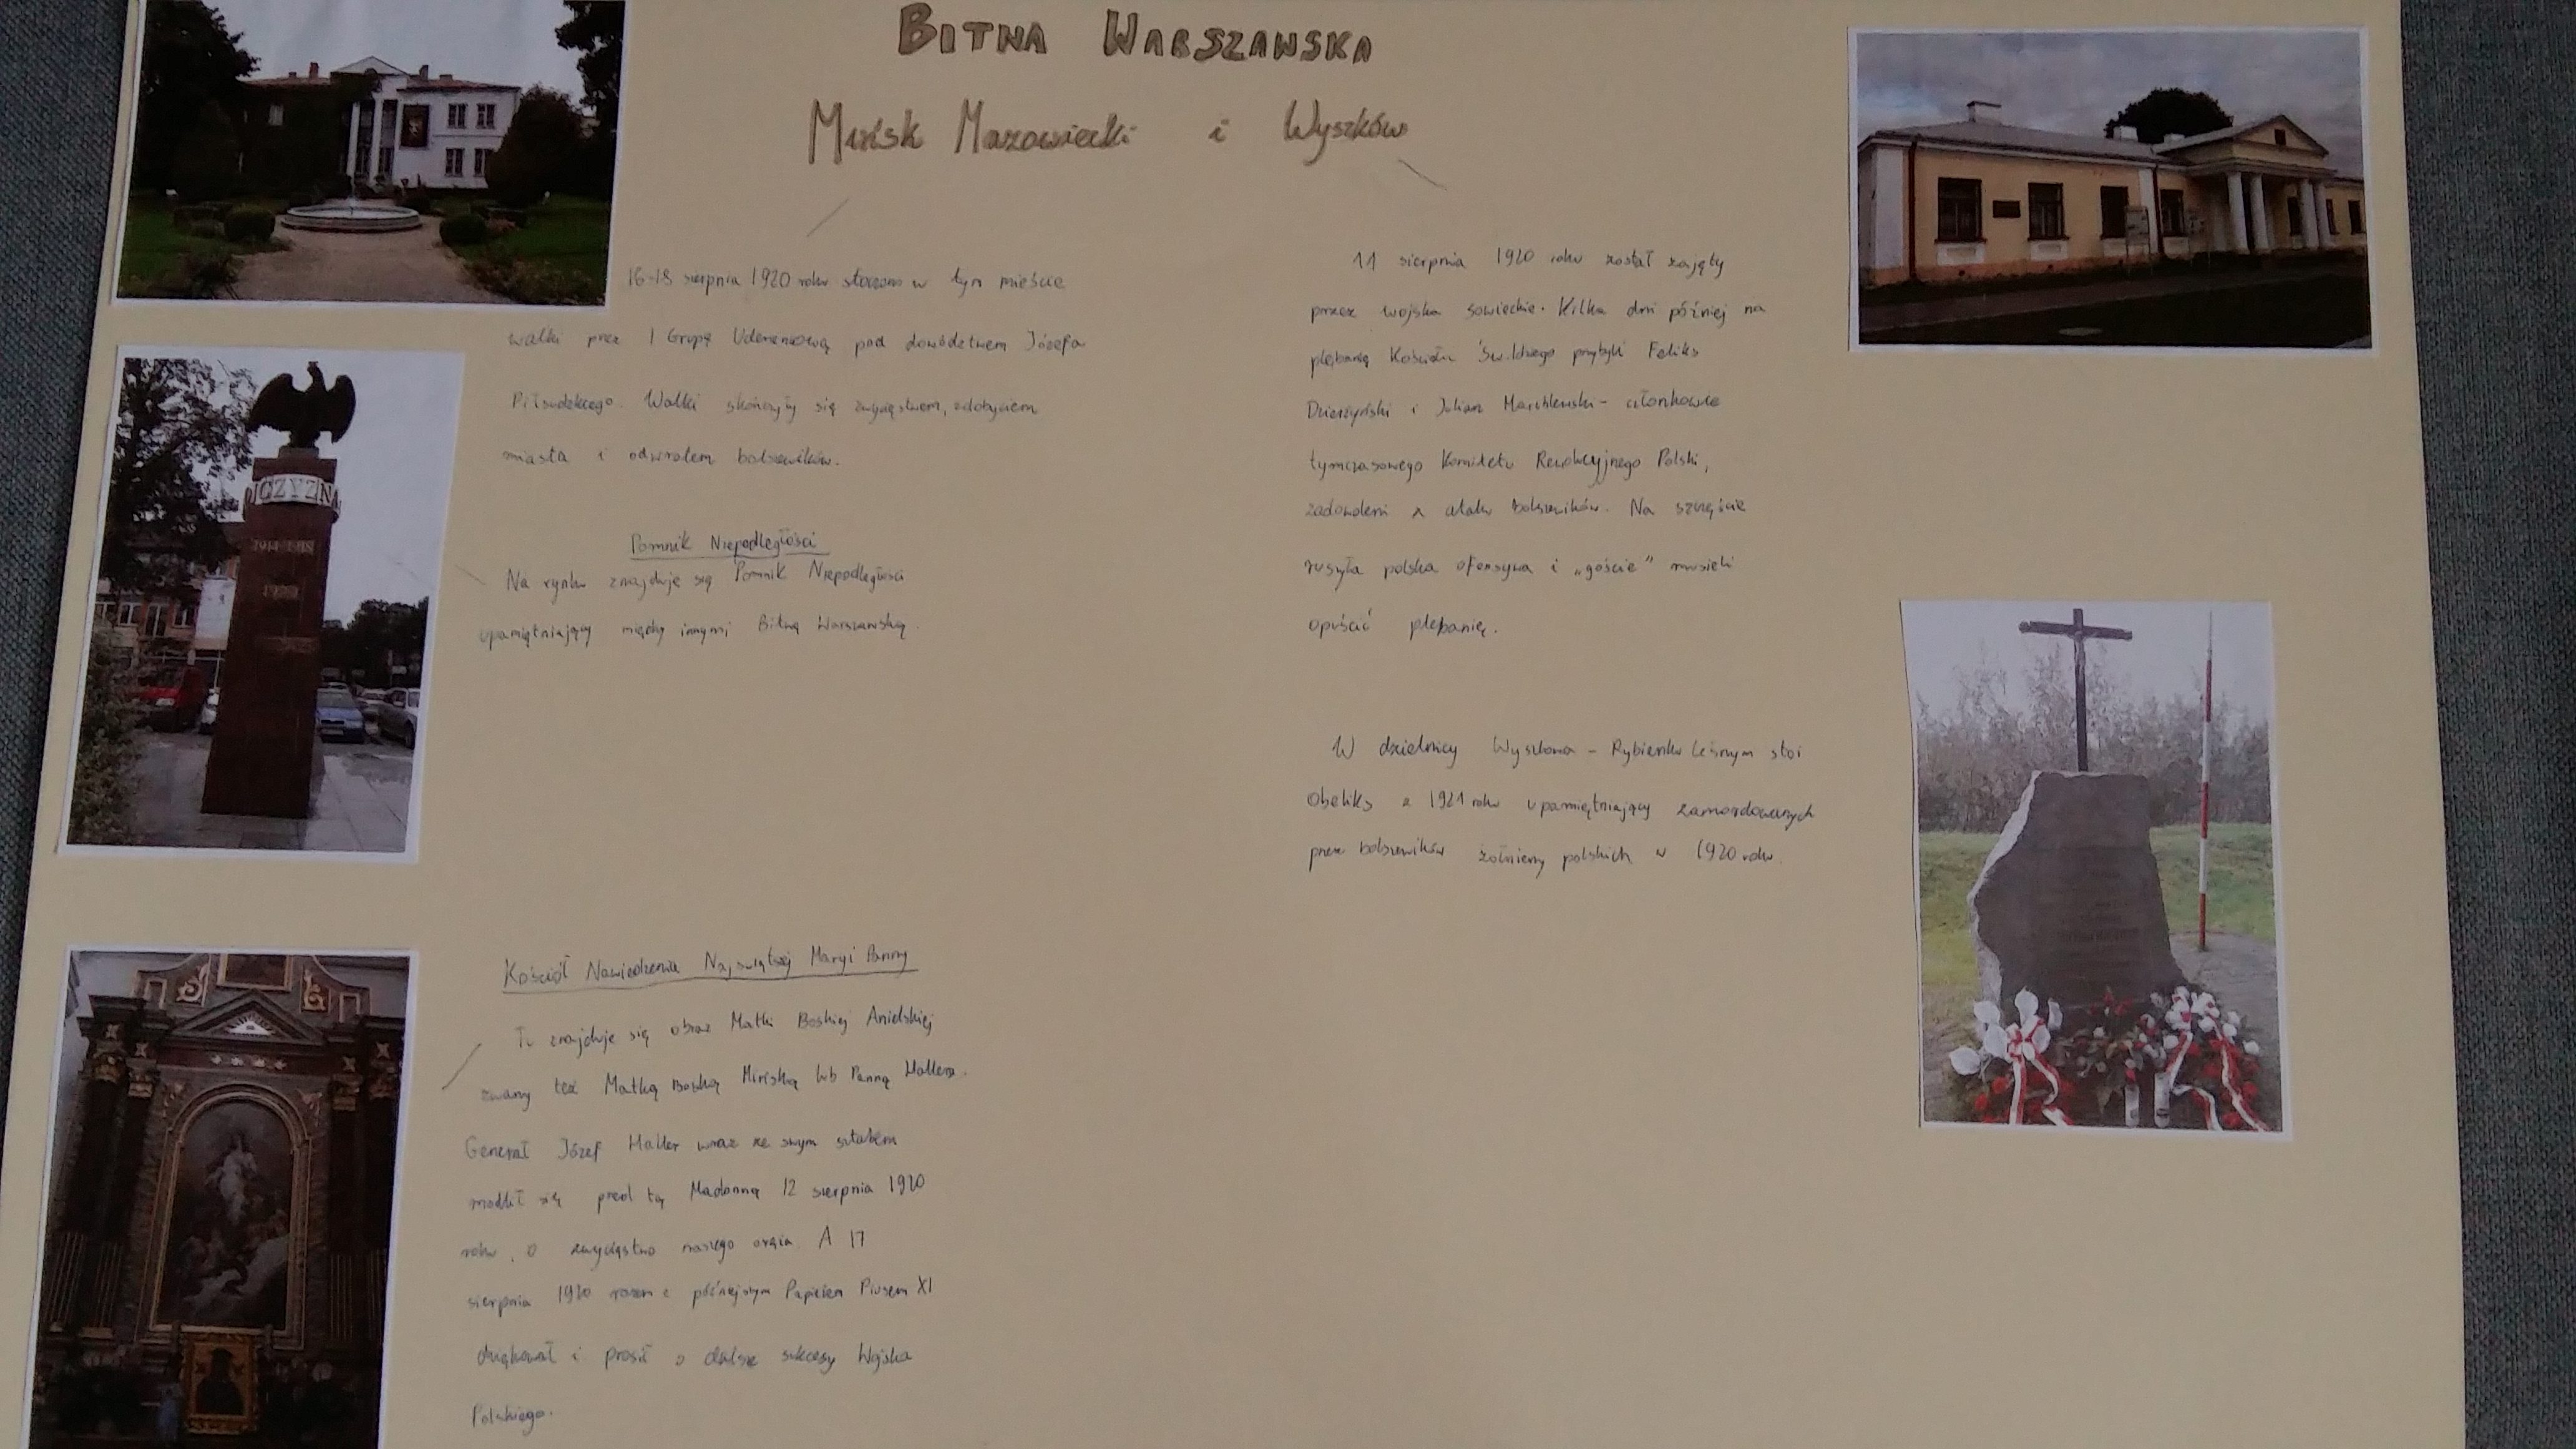 BITWA WARSZAWSKA
Mińsk Mazowiecki i Wyszków
16-18 sierpnia 1920 roku stoczono w tym mieście
walki przez I Grupę Uderzeniową pod dowództwem Józefa
Piłsudskiego. Walki skończyły się zwycięstwem, zdobyciem
miasta i odwrotem bolszewików.
OJCZYZNA
1914-1918
1920
Pomnik Niepodległości
Na rynku znajduje się Pomnik Niepodległości
upamiętniający między innymi Bitwę Warszawską.
Kościół Nawiedzenia Najświętszej Maryi Panny
Tu znajduje się obraz Matki Boskiej Anielskiej
zwany też Matką Boską Mińską lub Panną Hallera.
Generał Józef Haller wraz ze swym sztabem
modlił się przed tą Madonną 12 sierpnia 1920
roku, o zwycięstwo naszego oręża. A 17
sierpnia 1920 razem z późniejszym Papieżem Piusem XI
dziękował i prosił o dalsze sukcesy Wojska
Polskiego.
11 sierpnia 1920 roku został zajęty
przez wojska sowieckie. Kilka dni później na
plebanię Kościoła Św. Idziego przybyli Feliks
Dzierżyński i Julian Marchlewski - członkowie
tymczasowego Komitetu Rewolucyjnego Polski,
zadowoleni z ataku bolszewików. Na szczęście
ruszyła polska ofensywa i „goście" musieli
opuścić plebanię.
W dzielnicy Wyszkowa - Rybienku Leśnym stoi
obelisk z 1921 roku upamiętniający zamordowanych
przez bolszewików żołnierzy polskich w 1920 roku.